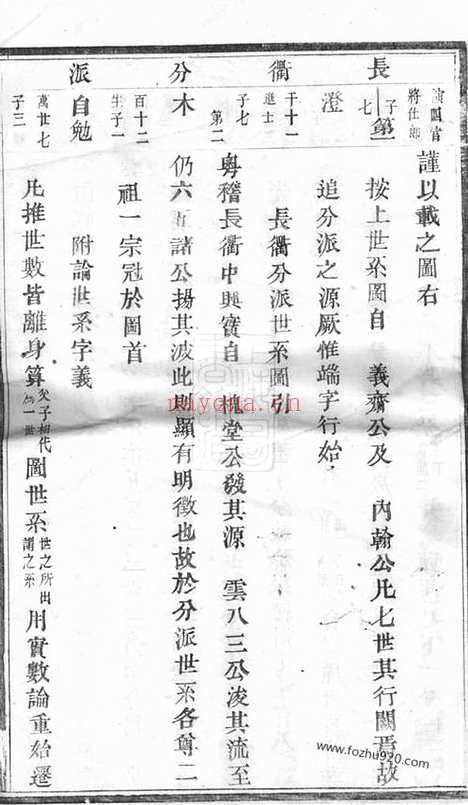 長衢分派
將仕郎
子七
第一
澄
千十一
進士
子七
第二
木
百十二
生子一
自勉
萬世七
子三
謹以載之圖右
按上世系圖自 義齋公及 內翰公凡七世其行闕焉故
追分派之源厥惟端字行始
長衢分派世系圖引
粤稽長衢中興實自 槐堂公發其源 雲八三公浚其流至
仍六五諸公揚其波此則顯有明徵也故於分派世系各尊二
祖一宗冠於圖首
附論世系字義
凡推世數皆離身算父子相代為一世圖世系世之所出謂之系用實數論重始遷
nayona.cn
www.fozhu920.com